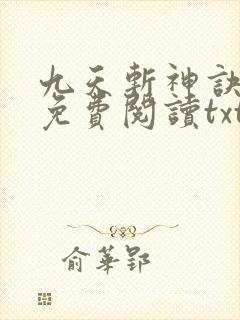 九天斬神訣
免費閱讀txt
俞華郢